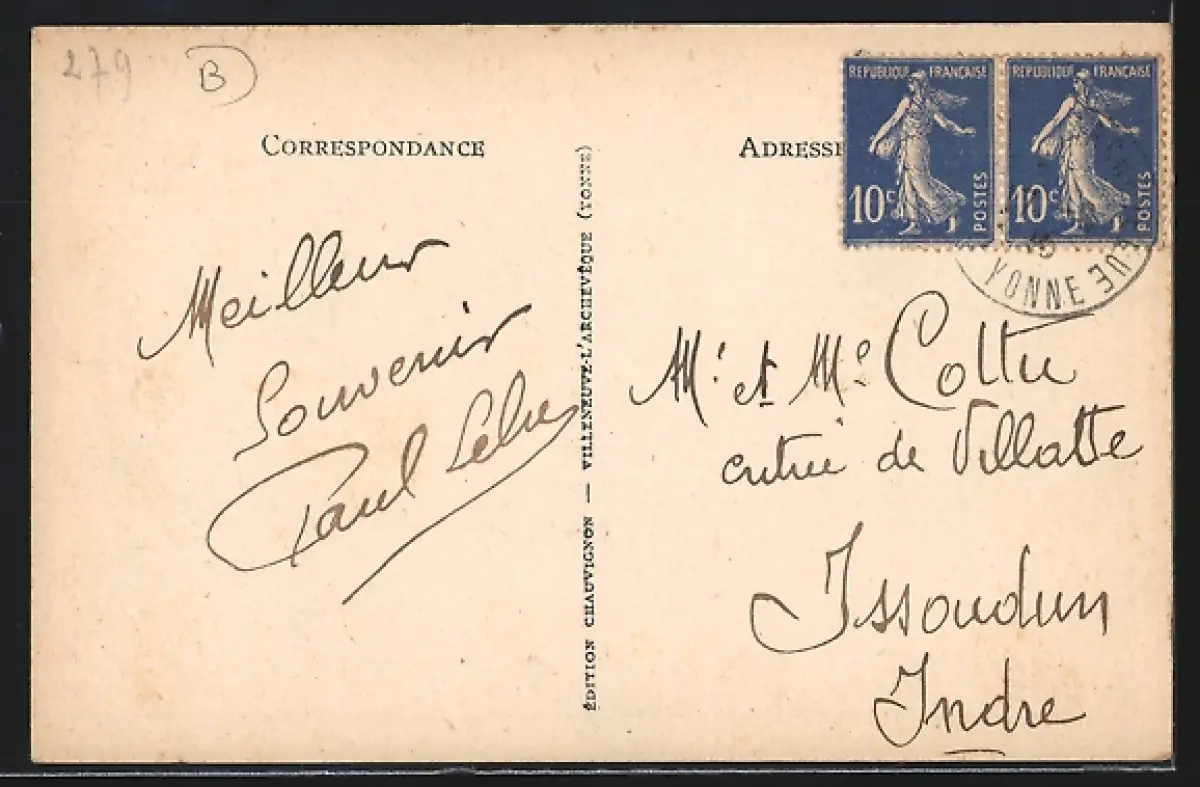 279 B
CORRESPONDANCE
Meilleur
Souvenir
Paul
ÉDITION CHAUVIGNON — VILLENEUVE-L'ARCHEVÊQUE (YONNE)
ADRESSE
REPUBLIQUE FRANÇAISE
10c POSTES
REPUBLIQUE FRANÇAISE
10c POSTES
YONNE
Mr et Me Cottu
de Villatte
Issoudun
Indre